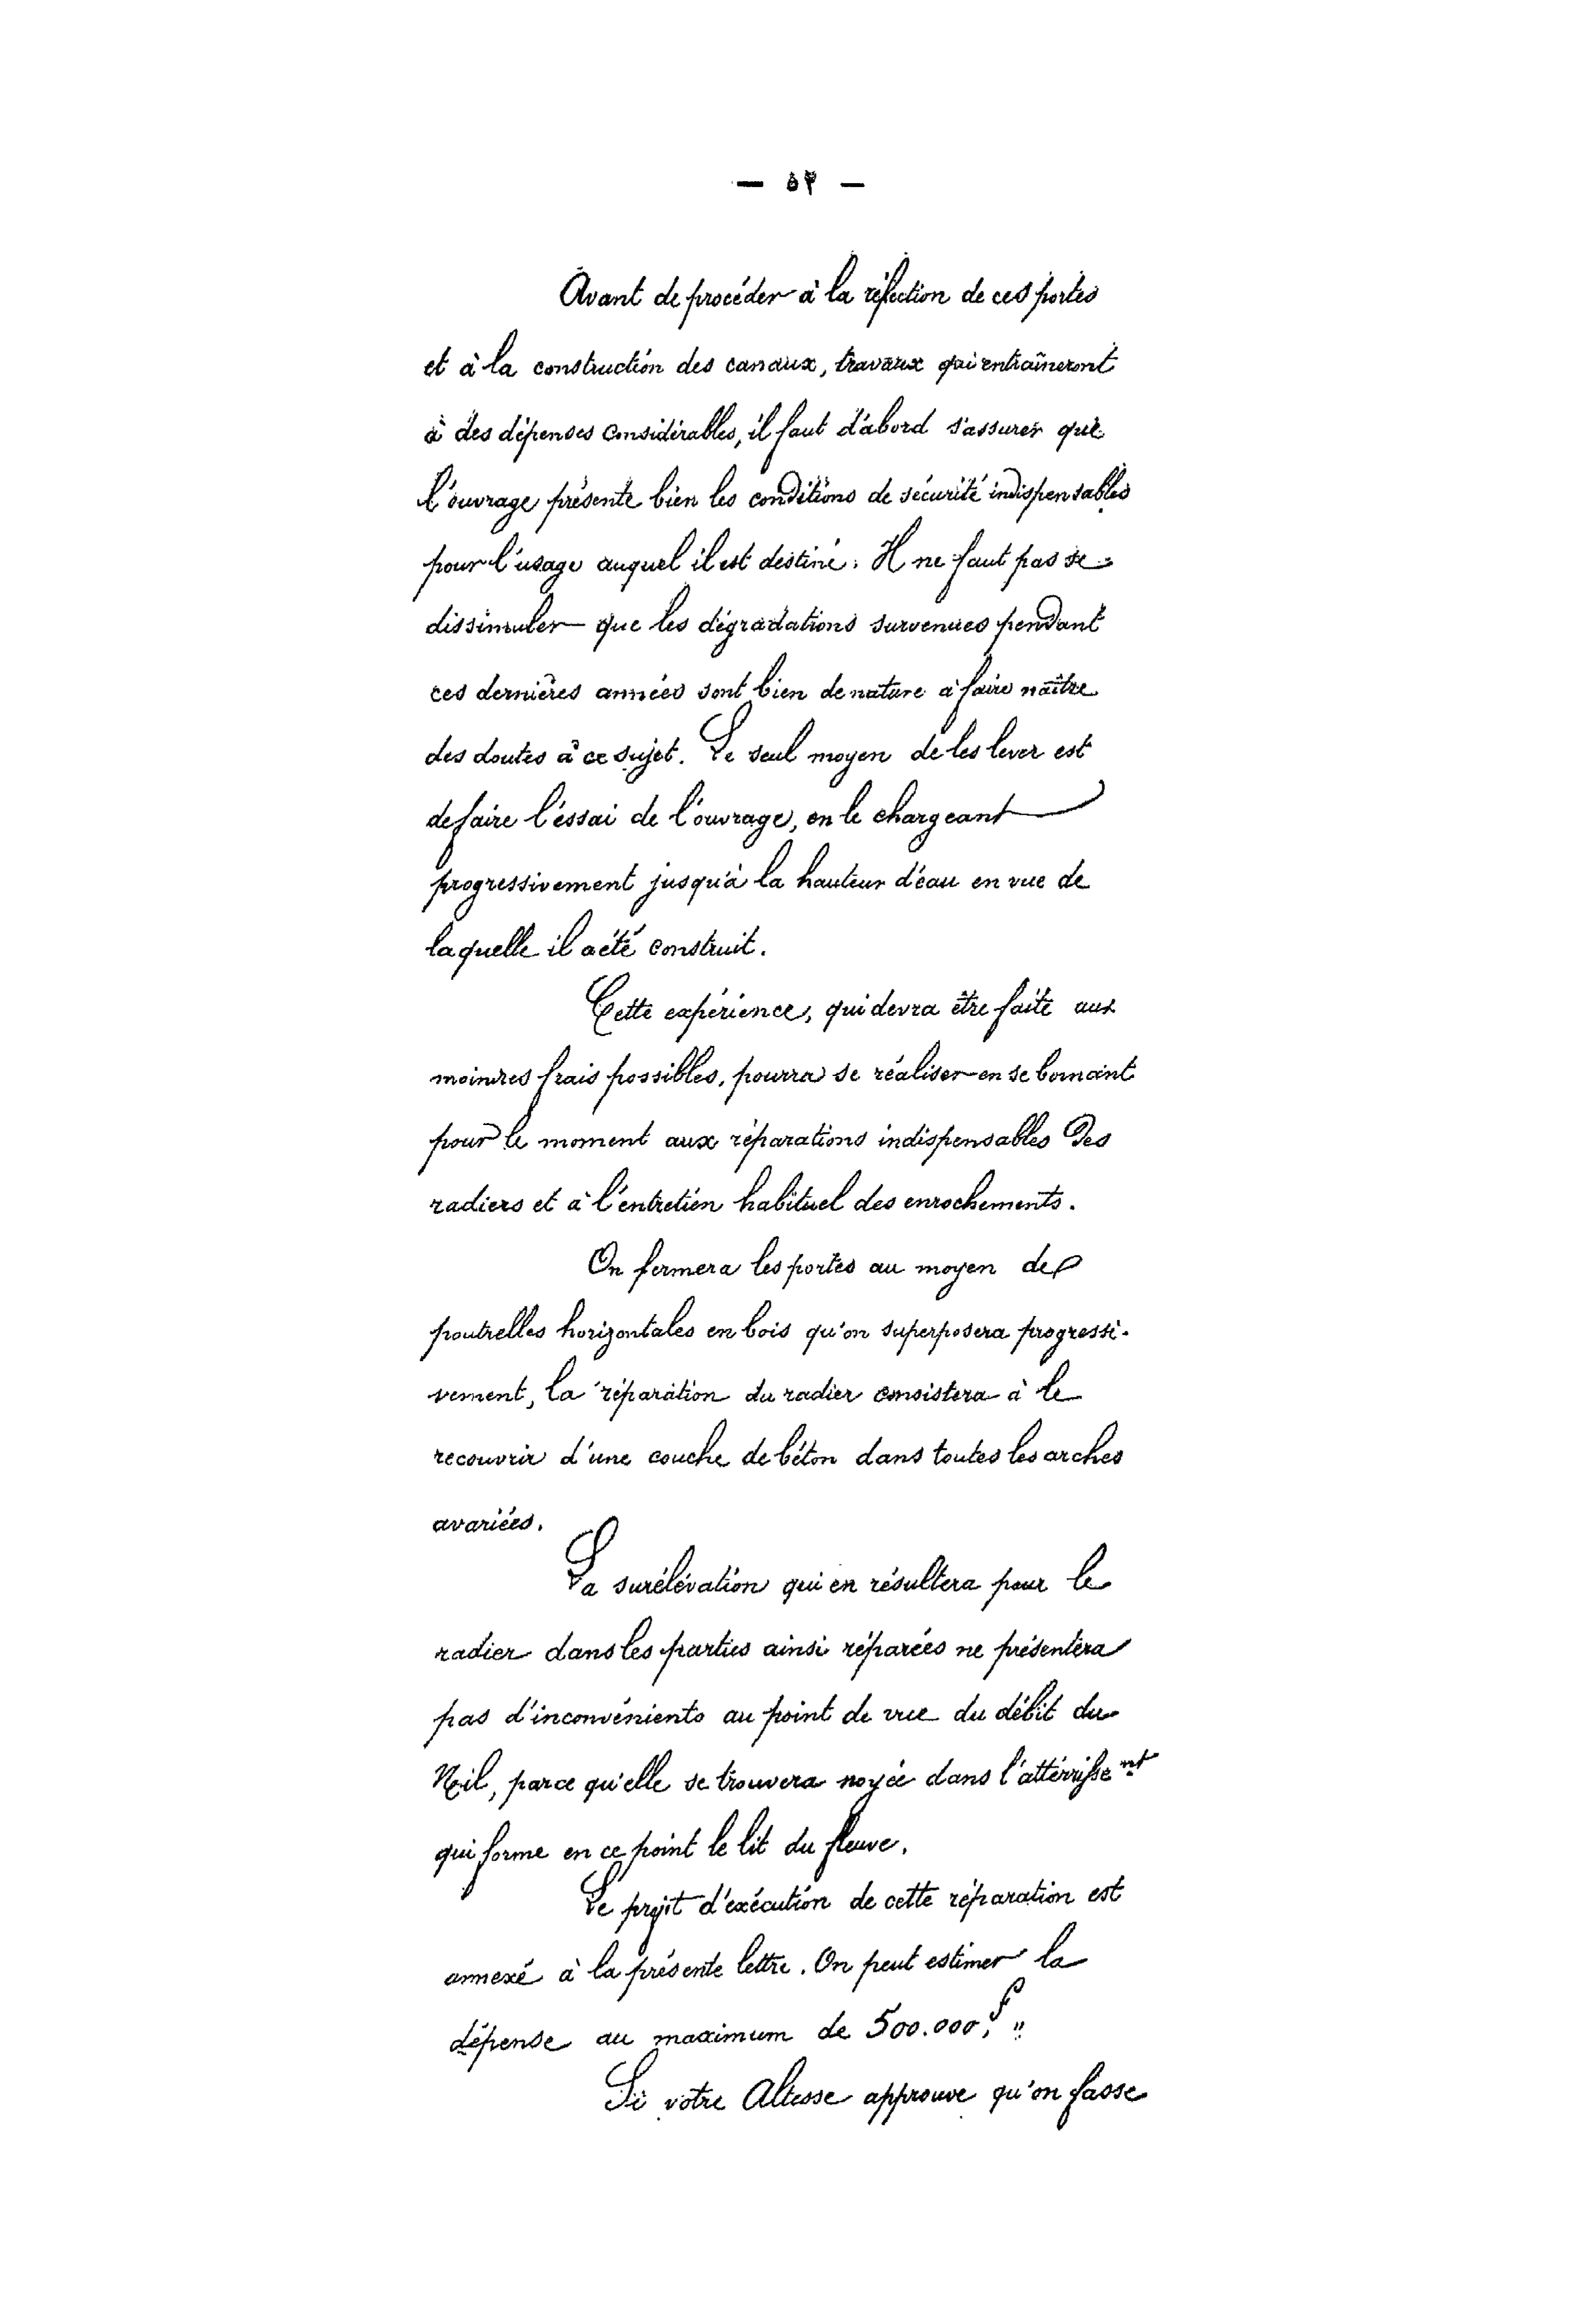 — ٥٢ —
Avant de procéder à la réfection de ces portes
et à la construction des canaux, travaux qui entraîneront
à des dépenses considérables, il faut d'abord s'assurer que
l'ouvrage présente bien les conditions de sécurité indispensables
pour l'usage auquel il est destiné. Il ne faut pas se
dissimuler que les dégradations survenues pendant
ces dernières années sont bien de nature à faire naître
des doutes à ce sujet. Le seul moyen de les lever est
de faire l'éssai de l'ouvrage, en le chargeant
progressivement jusqu'à la hauteur d'eau en vue de
laquelle il a été construit.
Cette expérience, qui devra être faite aux
moindres frais possibles, pourra se réaliser en se bornant
pour le moment aux réparations indispensables des
radiers et à l'entretien habituel des enrochements.
On fermera les portes au moyen de
poutrelles horizontales en bois qu'on superposera progressi-
vement, la réparation du radier consistera à le
recouvrir d'une couche de béton dans toutes les arches
avariées.
La surélévation qui en résultera pour le
radier dans les parties ainsi réparées ne présentera
pas d'inconvénients au point de vue du débit du
Nil, parce qu'elle se trouvera noyée dans l'attérrissent
qui forme en ce point le lit du fleuve.
Le projet d'exécution de cette réparation est
annexé à la présente lettre. On peut estimer la
dépense au maximum de 500.000,f "
Si votre Altesse approuve qu'on fasse